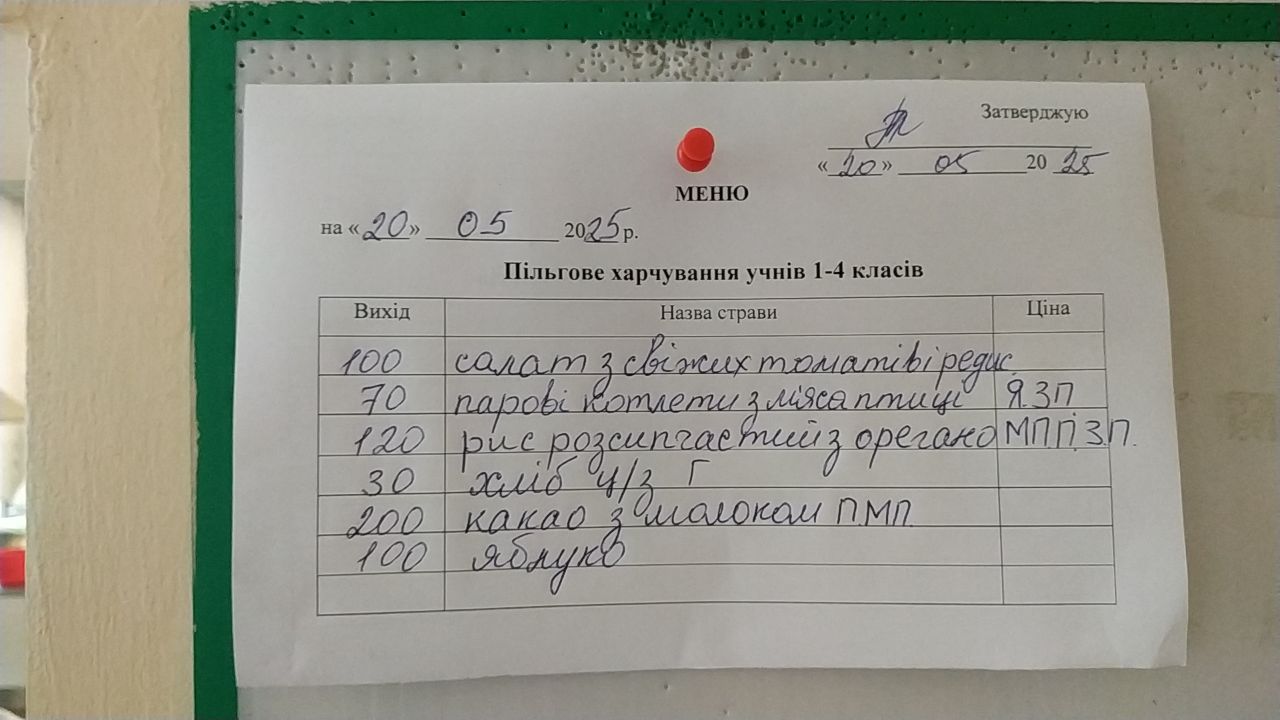 Затверджую
«20» 05 2025
МЕНЮ
на «20» 05 2025 р.
Пільгове харчування учнів 1-4 класів
Вихід Назва страви Ціна
100 салат з свіжих томатів і редис.
70 парові котлети з м'яса птиці Я.ЗП
120 рис розсипчастий з орегано МПП.З.П.
30 хліб ц/з Г
200 какао з молоком П.МП.
100 яблуко